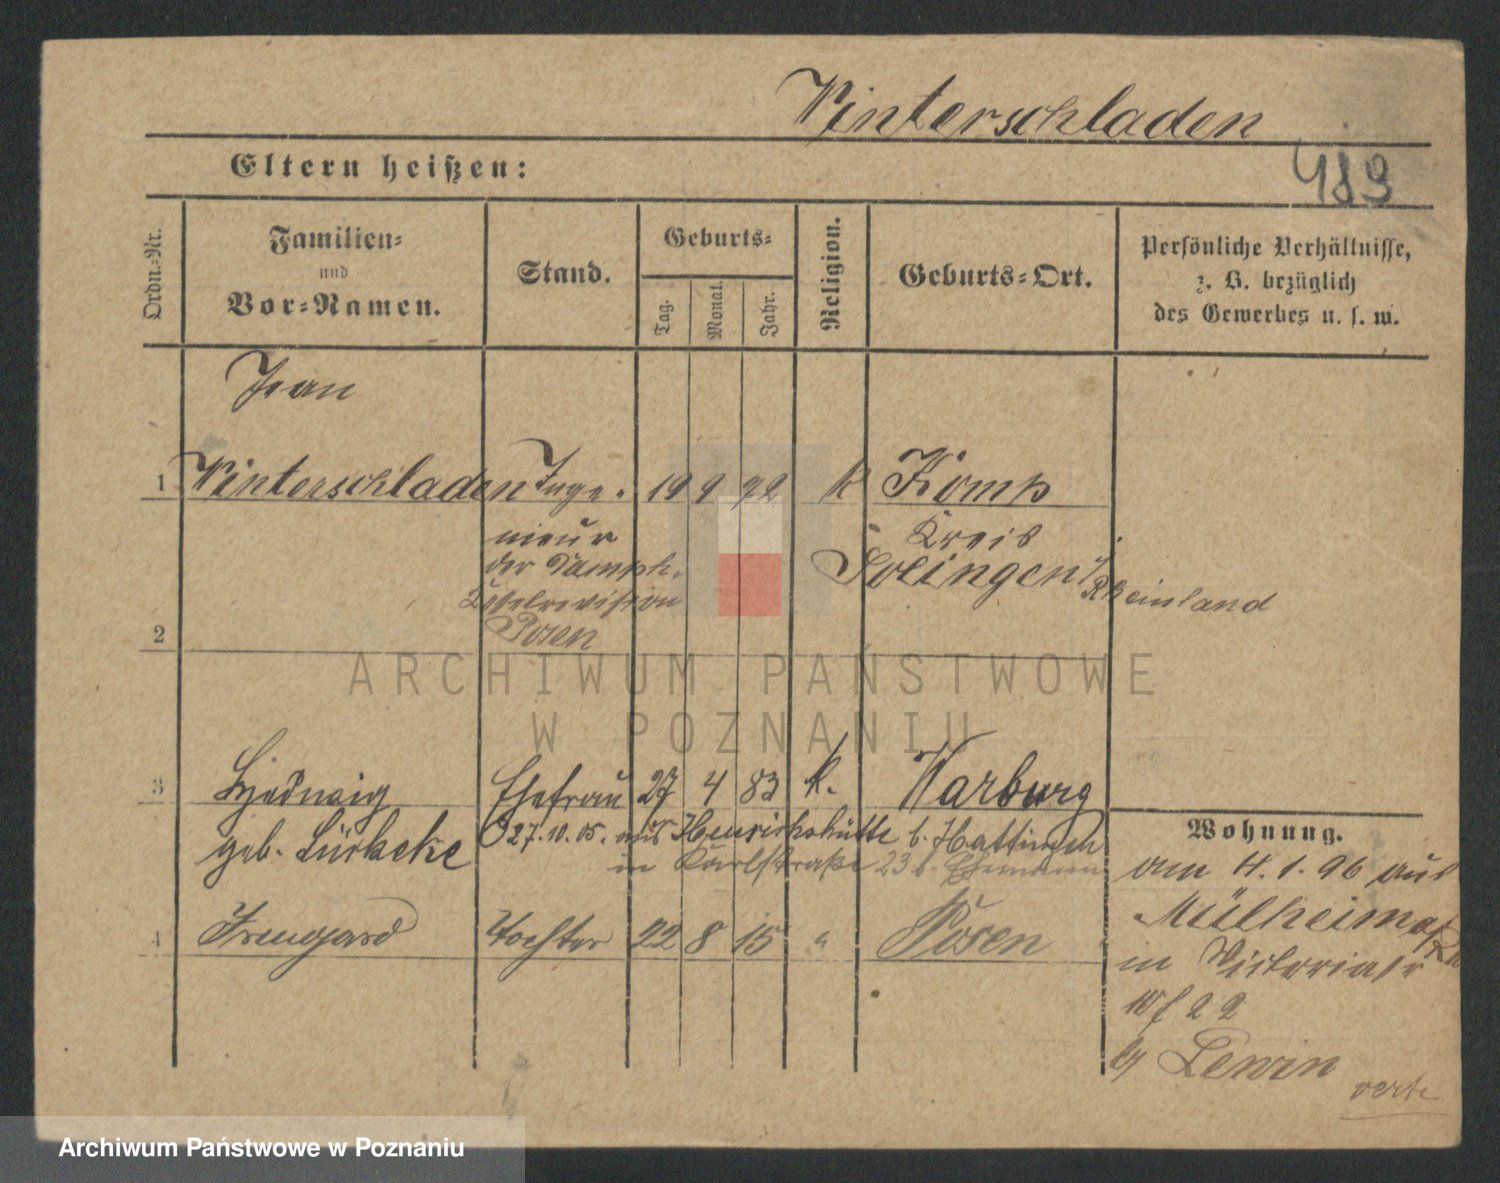 Winterschladen
489
Eltern heißen:
Ordn.-Nr.
Familien-
und
Vor-Namen.
Stand.
Geburts-
Tag.
Monat.
Jahr.
Religion.
Geburts-Ort.
Persönliche Verhältnisse,
z. B. bezüglich
des Gewerbes u. s. w.
Jean
1 Winterschladen Inge. 19 9 72 k Komp
nieur Kreis
der Dampfk. Solingen
Kesselrevision Rheinland
Posen
2
3 Hedwig Ehefrau 27 4 83 k. Warburg
geb. Lürkeke 27.10.05. aus Henrichshütte b. Hattingen
in Karlstraße 23 b. Ehemann
4 Irmgard Tochter 22 8 15 " Posen
Wohnung.
am 4.1.96 aus
Mülheim a/Rh
in Victoriastr
22
Lewin
verte
ARCHIWUM PAŃSTWOWE
W POZNANIU
Archiwum Państwowe w Poznaniu